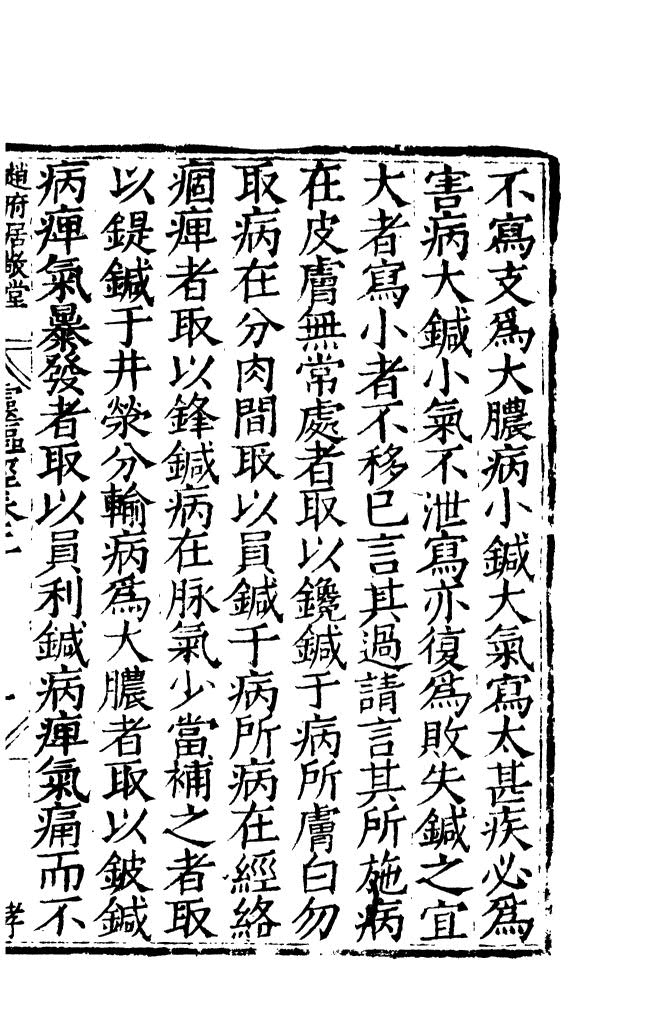 不寫支爲大膿病小鍼大氣寫太甚疾必爲
害病大鍼小氣不泄寫亦復爲敗失鍼之宜
大者寫小者不移已言其過請言其所施病
在皮膚無常處者取以鑱鍼于病所膚白勿
取病在分肉間取以員鍼于病所病在經絡
痼痺者取以鋒鍼病在脉氣少當補之者取
以鍉鍼于井滎分輸病爲大膿者取以鈹鍼
病痺氣暴發者取以員利鍼病痺氣痛而不
趙府居敬堂 靈樞經卷二 孝